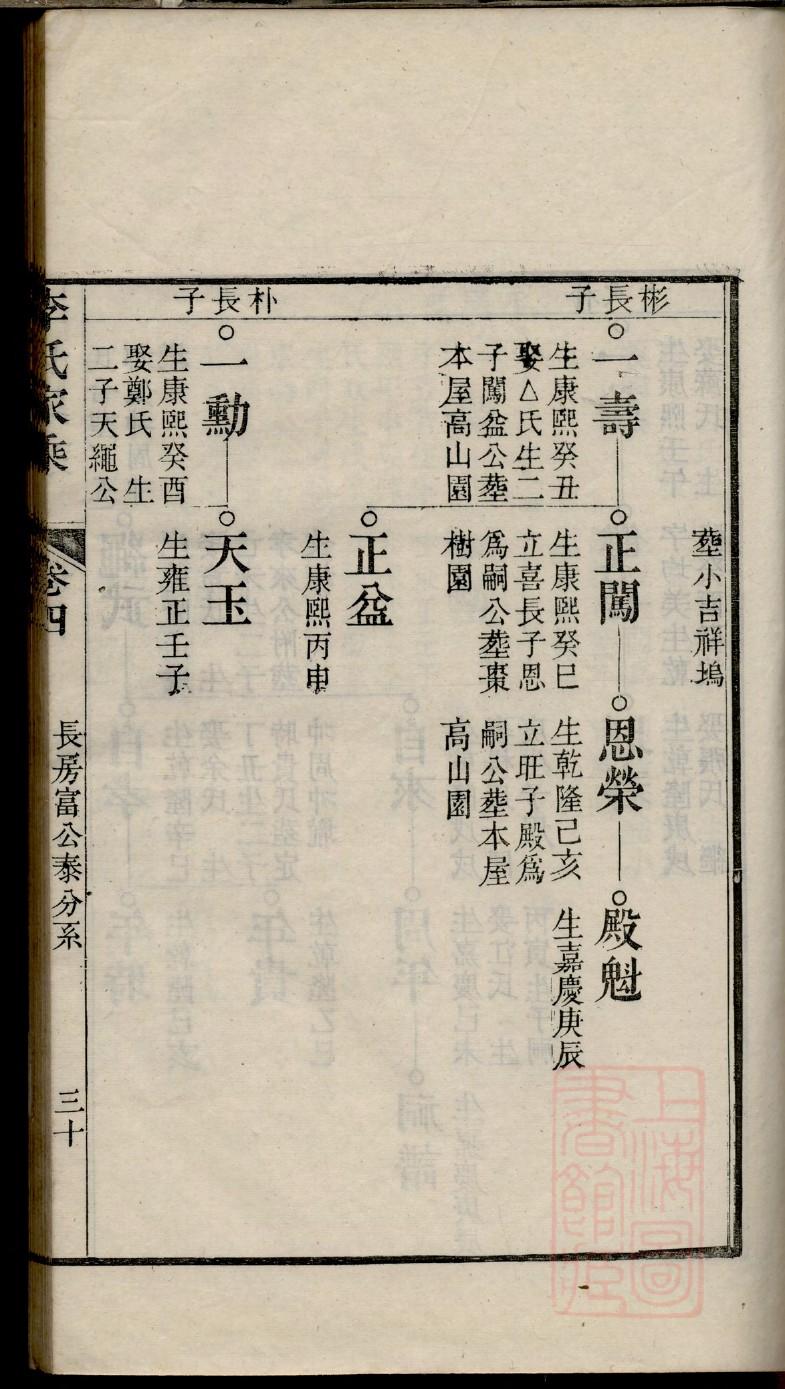 葬小吉祥塢
彬長子
一壽
生康熙癸丑
娶△氏生二
子闖益公葬
本屋高山園
正闖
生康熙癸巳
立喜長子恩
為嗣公葬棗
樹園
恩榮
生乾隆己亥
立旺子殿為
嗣公葬本屋
高山園
殿魁
生嘉慶庚辰
正益
生康熙丙申
朴長子
一勳
生康熙癸酉
娶鄭氏 生
二子天繩公
天玉
生雍正壬子
李氏家乘
卷四
長房富公泰分系
三十
上海圖書館藏